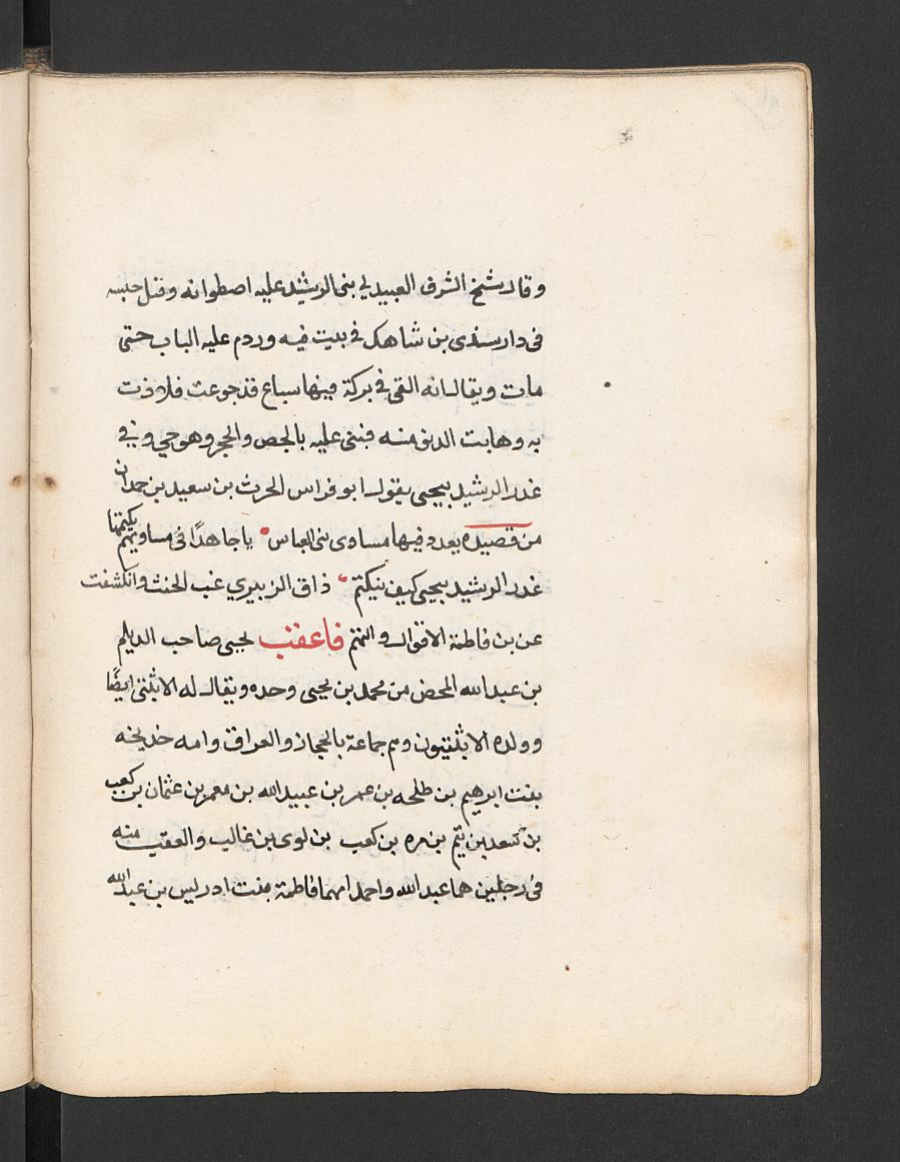 وقال شيخ الشرف العبيدلي بنى الرشيد عليه اصطوانه وقتل حبسه
فى دار سندى بن شاهك في بيت فيه وردم عليه الباب حتى
مات ويقال انه القى في بركة فيها سباع قد جوعت فلاذت
به وهابت الدنو منه فبنى عليه بالجص والحجر وهو حي وفي
غدر الرشيد بيحيى يقول ابو فراس الحرث بن سعيد بن حمدان
من قصيده يعدد فيها مساوى بنى العباس يا جاهدًا فى مساويهم يكتمها
غدر الرشيد بيحيى كيف ينكتم ذاق الزبيري غب الحنث وانكشفت
عن بن فاطمة الاقوال والتهم فاعقب يحيى صاحب الديلم
بن عبد الله المحض من محمد بن يحيى وحده ويقال له الاثلثى ايضًا
وولده الاثلثيون وهم جماعة بالحجاز والعراق وامه خديجه
بنت ابرهيم بن طلحه بن عمر بن عبيد الله بن معمر بن عثمان بن كعب
بن سعد بن تيم بن مره بن كعب بن لوى بن غالب والعقب منه
فى رجلين هما عبد الله واحمد امهما فاطمة بنت ادريس بن عبد الله